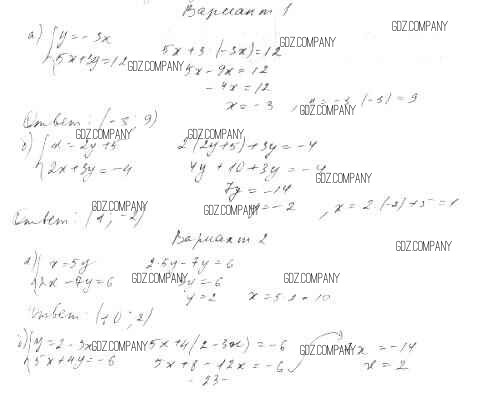 Вариант 1
GDZ.COMPANY
а) { y = -3x    5x + 3·(-3x) = 12    GDZ.COMPANY
5x + 3y = 12    GDZ.COMPANY    5x - 9x = 12
-4x = 12
x = -3    , y = -3·(-3) = 9    GDZ.COMPANY
Ответ: (-3; 9)
GDZ.COMPANY    GDZ.COMPANY
б) { x = 2y + 5    2(2y+5) + 3y = -4
2x + 3y = -4    4y + 10 + 3y = -4
7y = -14    GDZ.COMPANY
y = -2    , x = 2·(-2) + 5 = 1
Ответ: (1; -2)    GDZ.COMPANY    GDZ.COMPANY
Вариант 2
GDZ.COMPANY
а) { x = 5y    2·5y - 7y = 6
2x - 7y = 6    GDZ.COMPANY    3y = -6    GDZ.COMPANY
y = 2    x = 5·2 = 10
Ответ: (10; 2)
б) { y = 2 - 3x    GDZ.COMPANY    5x + 4(2 - 3x) = -6    GDZ.COMPANY    -7x = -14
5x + 4y = -6    5x + 8 - 12x = -6    x = 2
- 23 -